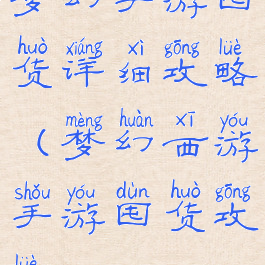 梦幻手游囤
huò xiáng xì gōng lüè
货详细攻略
mèng huàn xī yóu
（梦幻西游
shǒu yóu dùn huò gōng
手游囤货攻
lüè